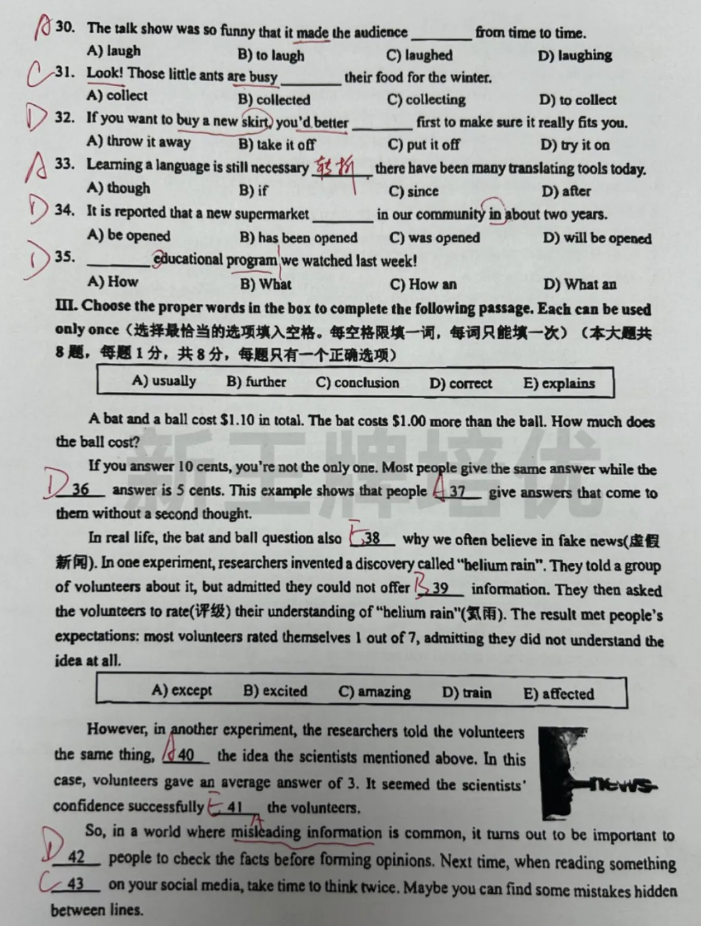 A 30. The talk show was so funny that it made the audience ________ from time to time.
A) laugh B) to laugh C) laughed D) laughing
C 31. Look! Those little ants are busy ________ their food for the winter.
A) collect B) collected C) collecting D) to collect
D 32. If you want to buy a new skirt, you'd better ________ first to make sure it really fits you.
A) throw it away B) take it off C) put it off D) try it on
A 33. Learning a language is still necessary 转折 there have been many translating tools today.
A) though B) if C) since D) after
D 34. It is reported that a new supermarket ________ in our community in about two years.
A) be opened B) has been opened C) was opened D) will be opened
D 35. ________ educational program we watched last week!
A) How B) What C) How an D) What an
III. Choose the proper words in the box to complete the following passage. Each can be used
only once（选择最恰当的选项填入空格。每空格限填一词，每词只能填一次）（本大题共
8 题，每题 1 分，共 8 分，每题只有一个正确选项）
A) usually B) further C) conclusion D) correct E) explains
A bat and a ball cost $1.10 in total. The bat costs $1.00 more than the ball. How much does
the ball cost?
新王牌培优
If you answer 10 cents, you're not the only one. Most people give the same answer while the
D 36 answer is 5 cents. This example shows that people A 37 give answers that come to
them without a second thought.
In real life, the bat and ball question also E 38 why we often believe in fake news(虚假
新闻). In one experiment, researchers invented a discovery called "helium rain". They told a group
of volunteers about it, but admitted they could not offer B 39 information. They then asked
the volunteers to rate(评级) their understanding of "helium rain"(氦雨). The result met people's
expectations: most volunteers rated themselves 1 out of 7, admitting they did not understand the
idea at all.
A) except B) excited C) amazing D) train E) affected
However, in another experiment, the researchers told the volunteers
the same thing, A 40 the idea the scientists mentioned above. In this
case, volunteers gave an average answer of 3. It seemed the scientists'
confidence successfully E 41 the volunteers.
news
So, in a world where misleading information is common, it turns out to be important to
D 42 people to check the facts before forming opinions. Next time, when reading something
C 43 on your social media, take time to think twice. Maybe you can find some mistakes hidden
between lines.